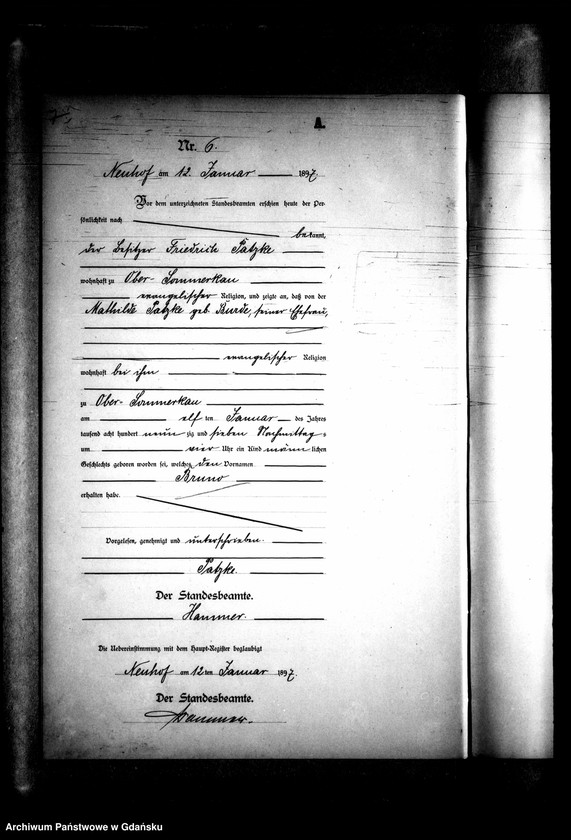 A.
Nr. 6.
Neuhof am 12. Januar 1897
Vor dem unterzeichneten Standesbeamten erschien heute der Per-
sönlichkeit nach
bekannt,
der Besitzer Friedrich Patzke
wohnhaft zu Ober-Sommerkau
evangelischer Religion, und zeigte an, daß von der
Mathilde Patzke geb. Burde, seiner Ehefrau,
evangelischer Religion
wohnhaft bei ihm
zu Ober-Sommerkau
am elf ten Januar des Jahres
tausend acht hundert neun zig und sieben Nachmittag s
um vier Uhr ein Kind männ lichen
Geschlechts geboren worden sei, welches den Vornamen
Bruno
erhalten habe.
Vorgelesen, genehmigt und unterschrieben.
Patzke.
Der Standesbeamte.
Hammer.
Die Uebereinstimmung mit dem Haupt-Register beglaubigt
Neuhof am 12 ten Januar 1897.
Der Standesbeamte.
Hammer.
Archiwum Państwowe w Gdańsku